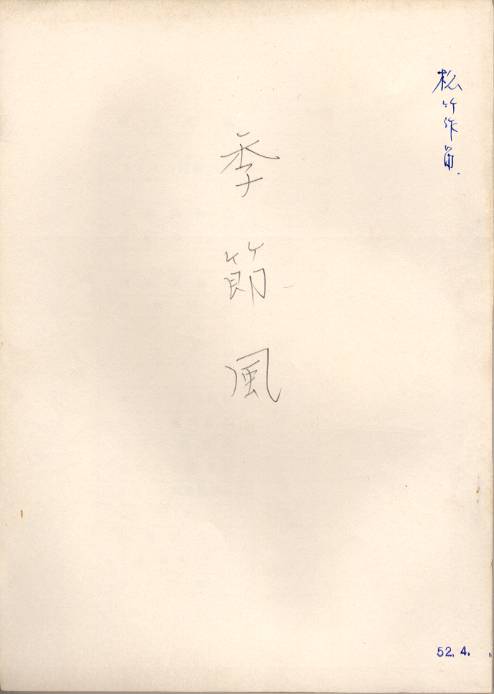 松竹作品.
季節風
52.4.